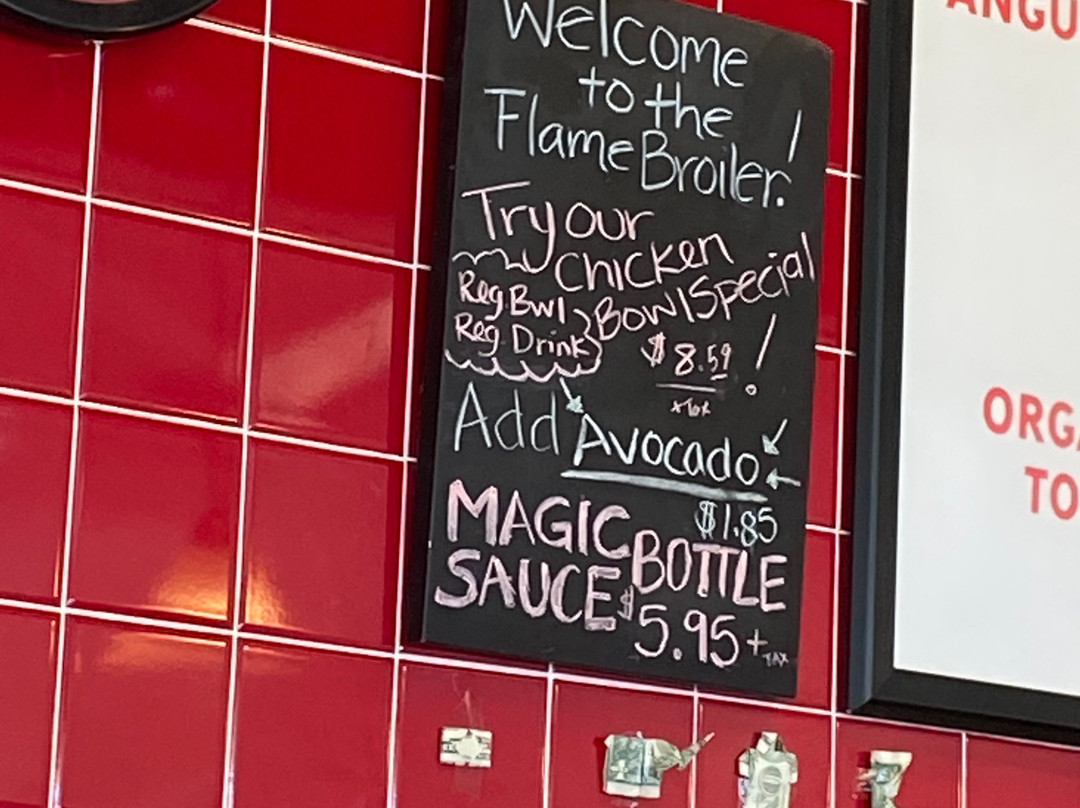 Welcome
to the
Flame Broiler!
Try our
Chicken
Bowl Special
Reg. Bwl
Reg. Drink
$8.59!
+Tax
Add Avocado
$1.85
MAGIC BOTTLE
SAUCE $5.95+
TAX
ANGU
ORGA
TO